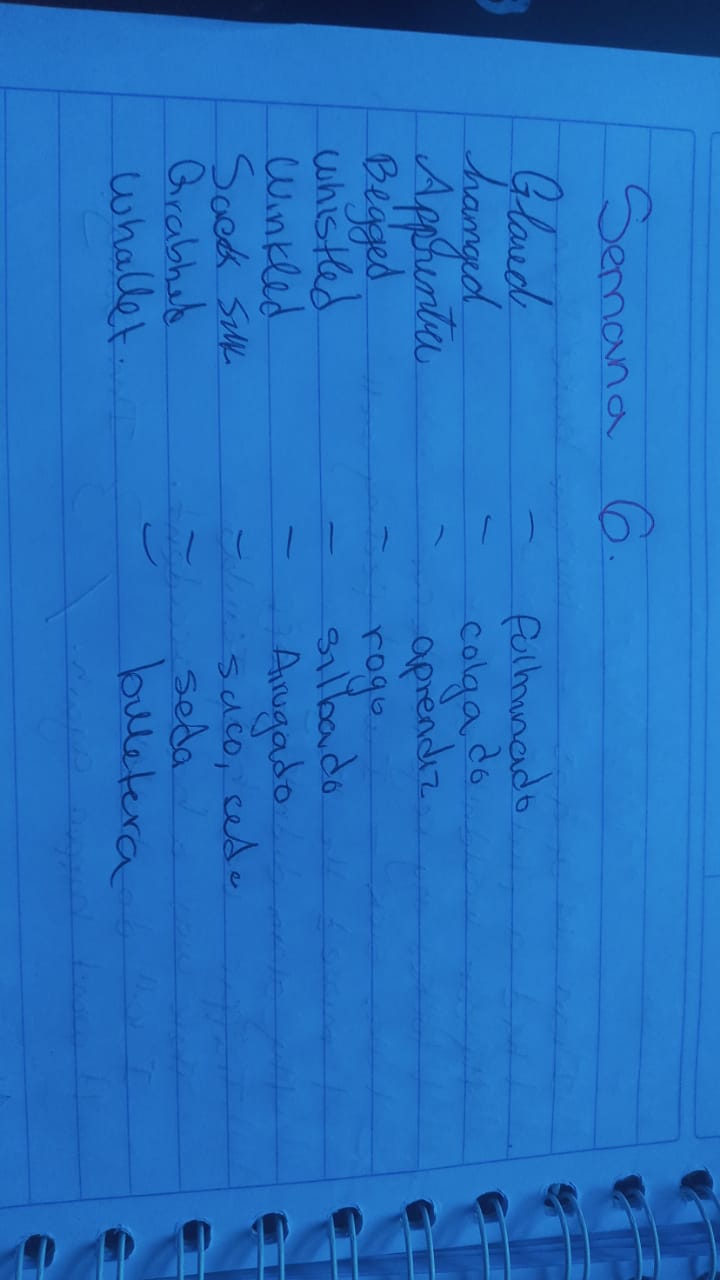 Semana 6.
Glared - fulminado
hanged - colgado
Apprentice - aprendiz
Begged - rogo
Whistled - silbado
Winkled - Arrugado
Sack silk - saco, seda
Grabbed - seda
Whallet. - billetera